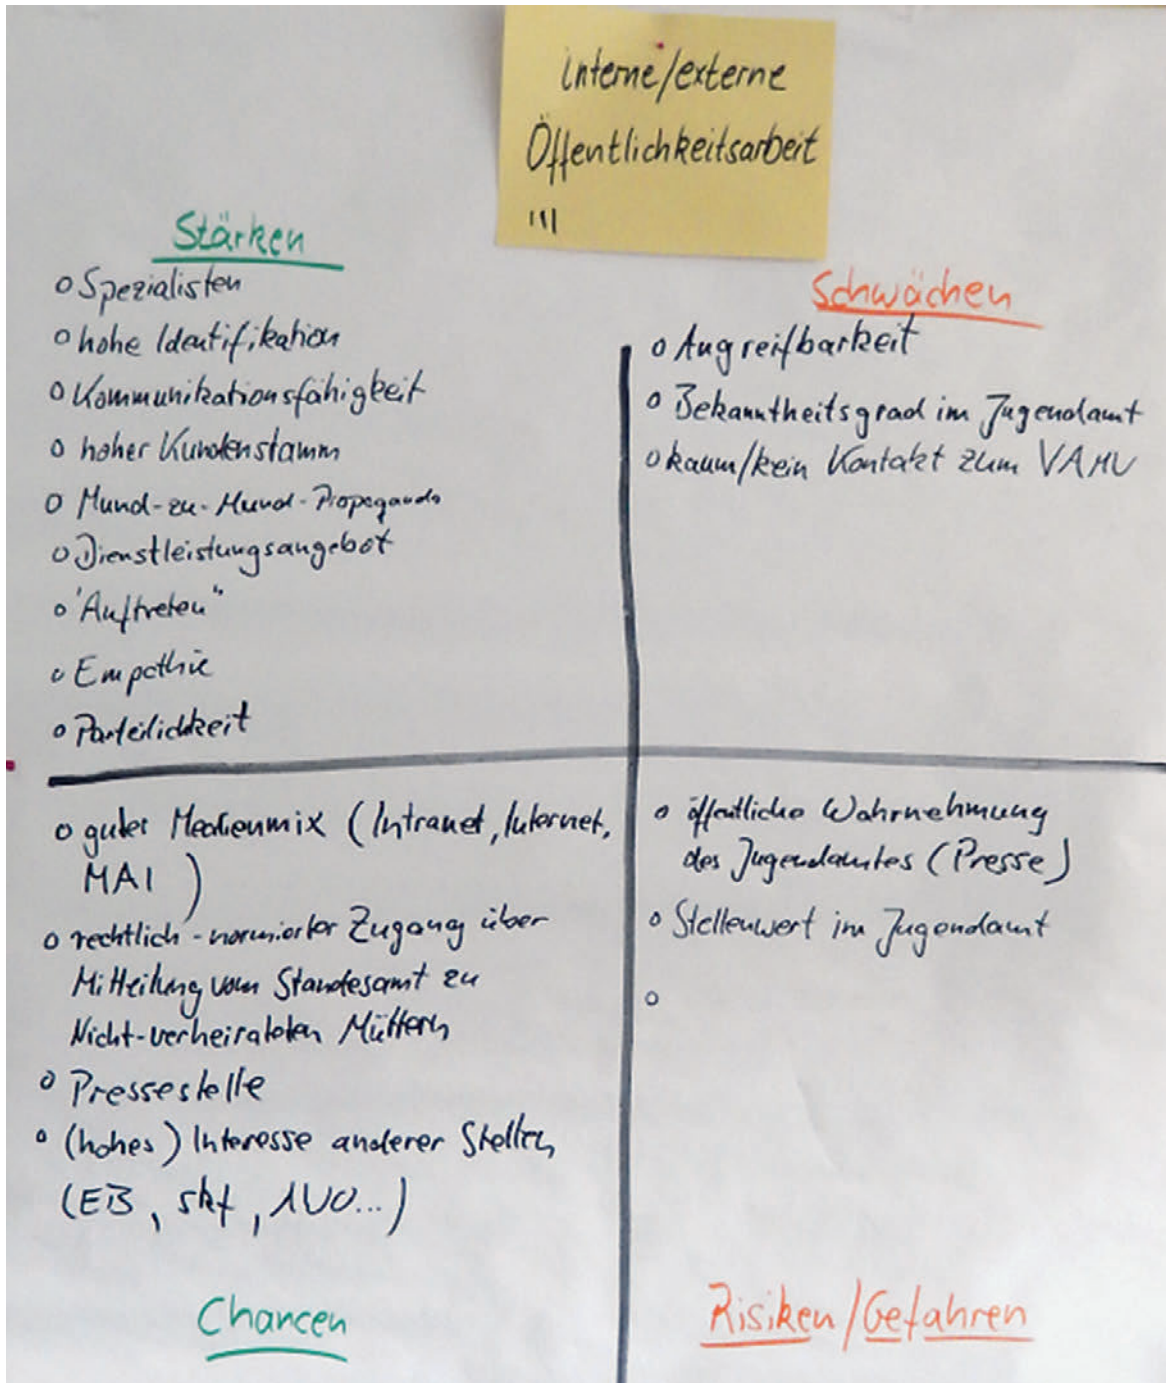 interne/externe
Öffentlichkeitsarbeit
Stärken
o Spezialisten
o hohe Identifikation
o Kommunikationsfähigkeit
o hoher Kundenstamm
o Mund-zu-Mund-Propaganda
o Dienstleistungsangebot
o "Auftreten"
o Empathie
o Parteilichkeit
Schwächen
o Angreifbarkeit
o Bekanntheitsgrad im Jugendamt
o kaum/kein Kontakt zum VAMV
o guter Medienmix (Intranet, Internet,
MAI )
o rechtlich-normierter Zugang über
Mitteilung vom Standesamt zu
Nicht-verheirateten Müttern
o Pressestelle
o (hohes) Interesse anderer Stellen
(EB, skf, AWO...)
Chancen
o öffentliche Wahrnehmung
des Jugendamtes (Presse)
o Stellenwert im Jugendamt
o
Risiken/Gefahren